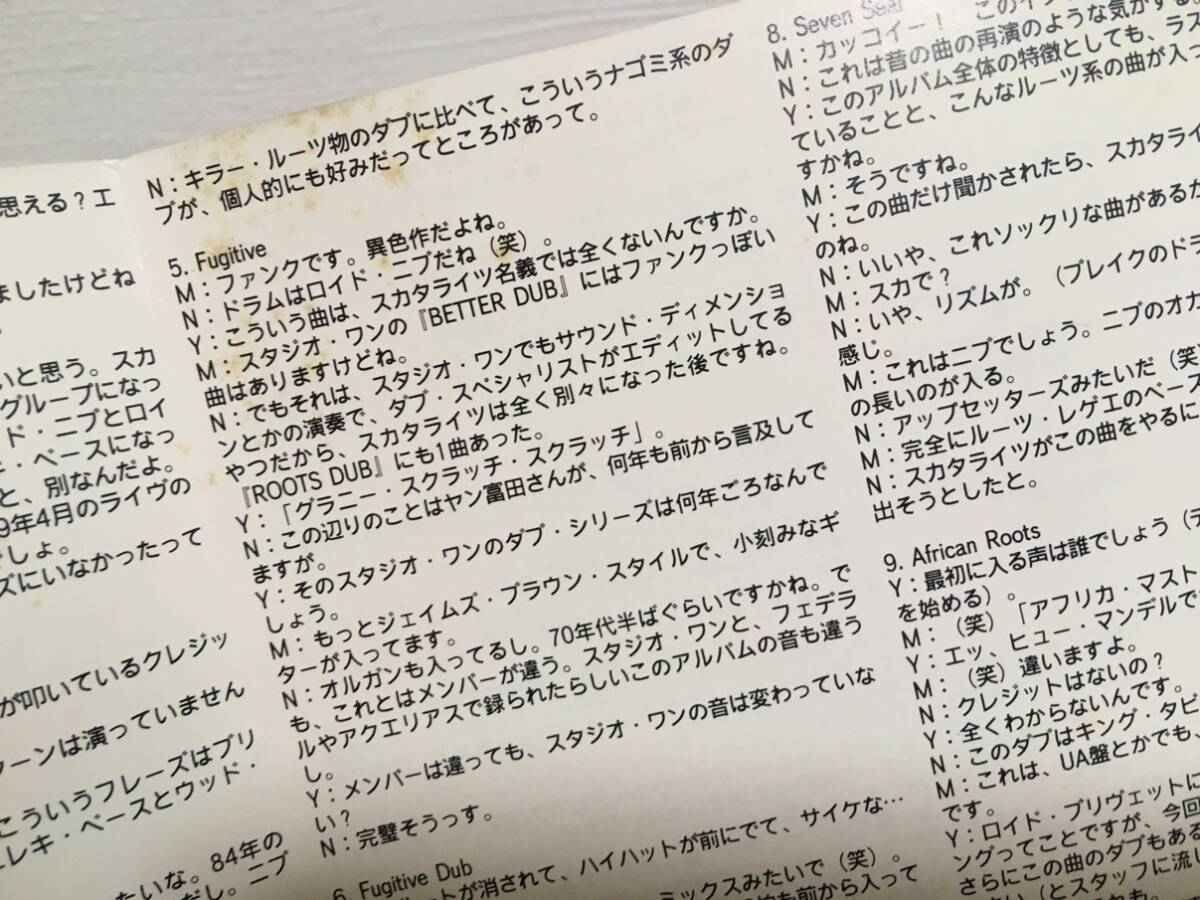 思える？エ
ましたけどね
いと思う。スカ
グループになっ
ド・ニブとロイ
キ・ベースになっ
と、別なんだよ。
9年4月のライヴの
でしょ。
ズにいなかったって
が叩いているクレジッ
ターンは演っていません
こういうフレーズはブリ
エレキ・ベースとウッド・
たいな。84年の
だし。ニブ
N：キラー・ルーツ物のダブに比べて、こういうナゴミ系のダ
ブが、個人的にも好みだってところがあって。
5. Fugitive
M：ファンクです。異色作だよね。
N：ドラムはロイド・ニブだね（笑）。
Y：こういう曲は、スカタライツ名義では全くないんですか。
M：スタジオ・ワンの『BETTER DUB』にはファンクっぽい
曲はありますけどね。
N：でもそれは、スタジオ・ワンでもサウンド・ディメンショ
ンとかの演奏で、ダブ・スペシャリストがエディットしてる
やつだから、スカタライツは全く別々になった後ですね。
『ROOTS DUB』にも1曲あった。
Y：「グラニー・スクラッチ・スクラッチ」。
N：この辺りのことはヤン富田さんが、何年も前から言及して
ますが。
Y：そのスタジオ・ワンのダブ・シリーズは何年ごろなんで
しょう。
M：もっとジェイムズ・ブラウン・スタイルで、小刻みなギ
ターが入ってます。
N：オルガンも入ってるし。70年代半ばぐらいですかね。で
も、これとはメンバーが違う。スタジオ・ワンと、フェデラ
ルやアクエリアスで録られたらしいこのアルバムの音も違う
し。
Y：メンバーは違っても、スタジオ・ワンの音は変わっていな
い？
N：完璧そうっす。
6. Fugitive Dub
ットが消されて、ハイハットが前にでて、サイケな…
ミックスみたいで（笑）。
も前から入って
8. Seven Seal
M：カッコイー！ このイン
N：これは昔の曲の再演のような気がする
Y：このアルバム全体の特徴としても、ラス
ていることと、こんなルーツ系の曲が入っ
すかね。
M：そうですね。
Y：この曲だけ聞かされたら、スカタライ
のね。
N：いいや、これソックリな曲があるか
M：スカで？
N：いや、リズムが。（ブレイクのドラ
感じ。
M：これはニブでしょう。ニブのオカ
の長いのが入る。
N：アップセッターズみたいだ（笑
M：完全にルーツ・レゲエのベース
N：スカタライツがこの曲をやるに
出そうとしたと。
9. African Roots
Y：最初に入る声は誰でしょう（テ
を始める）。
M：（笑）「アフリカ・マスト・
Y：エッ、ヒュー・マンデルで
M：（笑）違いますよ。
N：クレジットはないの？
Y：全くわからないんです。
N：このダブはキング・タビ
M：これは、UA盤とかでも、
です。
Y：ロイド・ブリヴェットに
ングってことですが、今回
さらにこの曲のダブもある
さい（とスタッフに流し